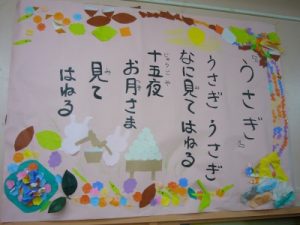 『うさぎ』
うさぎ うさぎ
なに見てはねる
十五夜
お月さま
見て
はねる